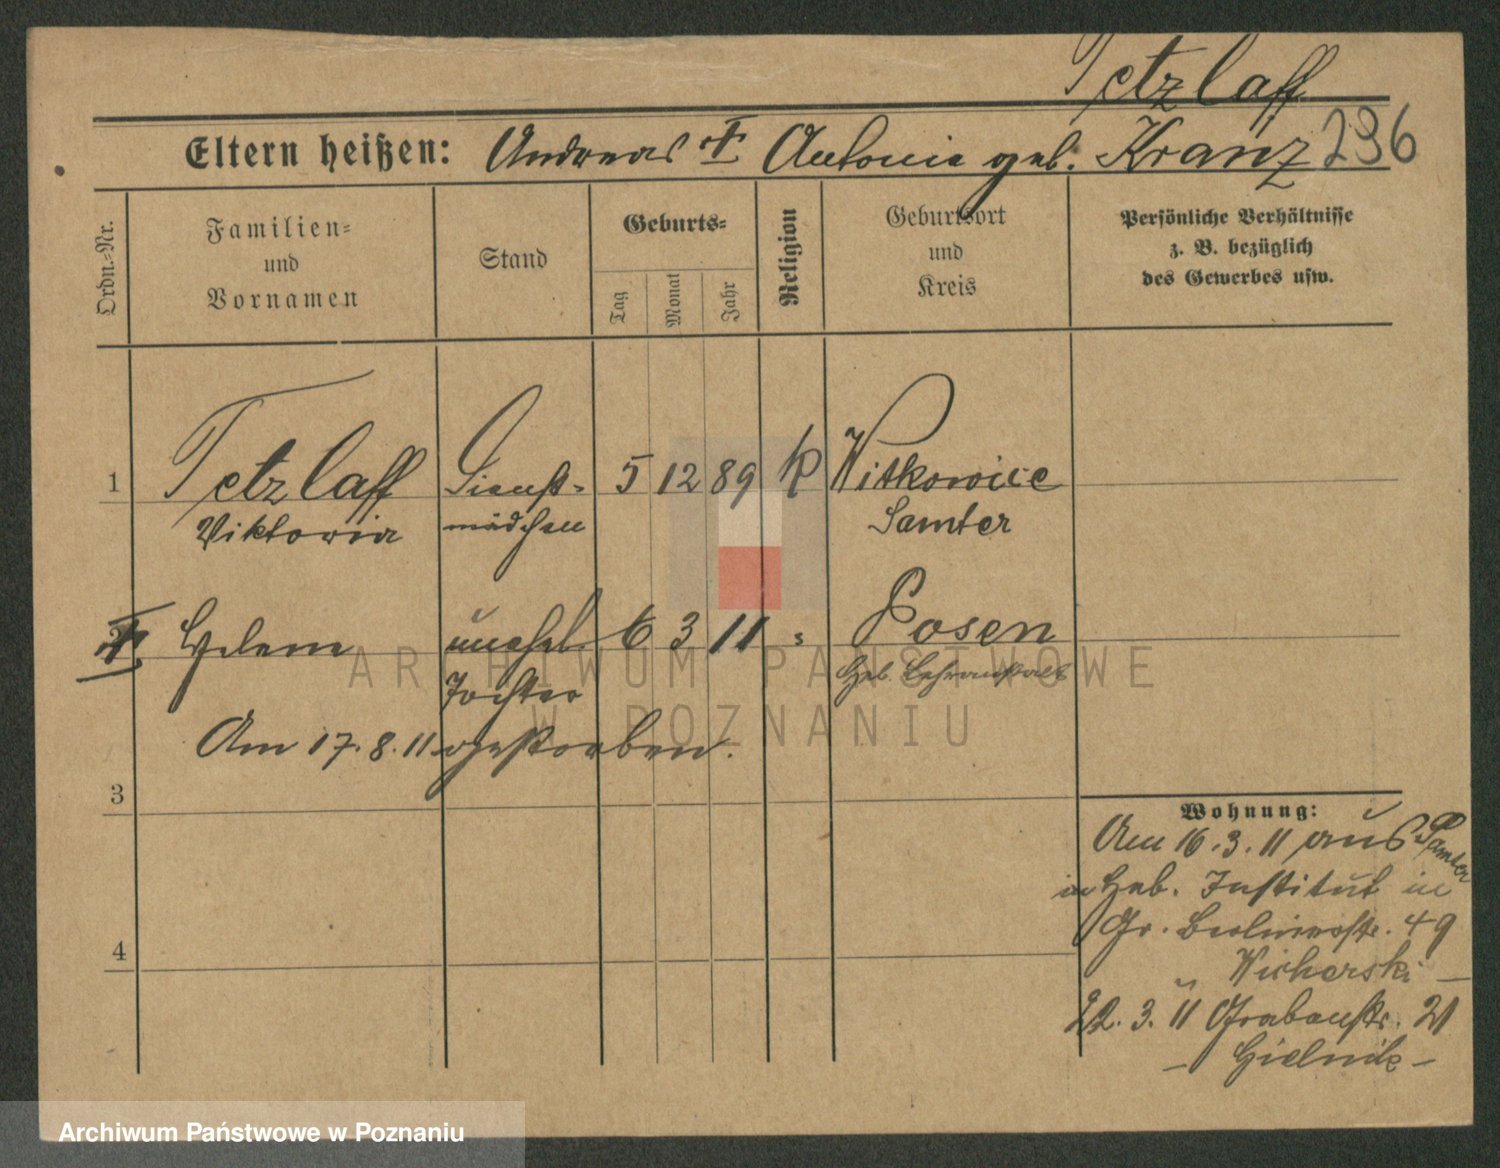 Tetzlaff
Eltern heißen: Andreas † Antonie geb. Kranz 296
Ordn.-Nr.
Familien-
und
Vornamen
Stand
Geburts-
Tag
Monat
Jahr
Religion
Geburtsort
und
Kreis
Persönliche Verhältnisse
z. B. bezüglich
des Gewerbes usw.
1 Tetzlaff Dienst- 5 12 89 k Witkowice
Viktoria mädchen Samter
† Helene unehel. 6 3 11 s Posen
Tochter Heb. Lehranstalt
Am 17.8.11 gestorben.
3
4
Wohnung:
Am 16.3.11 aus Samter
in Heb. Institut in
Gr. Berlinerstr. 49
Wicherski –
22.3.11 Grabenstr. 21
– Gielnik –
ARCHIWUM PAŃSTWOWE
W POZNANIU
Archiwum Państwowe w Poznaniu